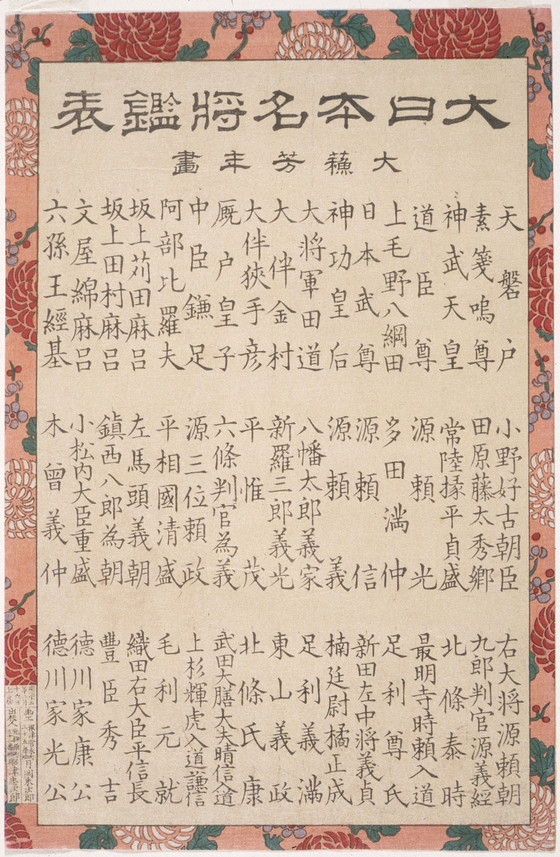 大日本名将鑑表
大蘇芳年畫
天磐户
素箋嗚尊
神武天皇
道臣尊
上毛野八綱田
日本武尊
神功皇后
大将軍田道
大伴金村
大伴狹手彦
厩户皇子
中臣鎌足
阿部比羅夫
坂上苅田麻呂
坂上田村麻呂
文屋綿麻呂
六孫王經基
小野好古朝臣
田原藤太秀郷
常陸掾平貞盛
源頼光
多田満仲
源頼信
源頼義
八幡太郎義家
新羅三郎義光
平惟茂
六條判官為義
源三位頼政
平相國清盛
左馬頭義朝
鎮西八郎為朝
小松内大臣重盛
木曾義仲
右大将源頼朝
九郎判官源義經
北條泰時
最明寺時頼入道
足利尊氏
新田左中将義貞
楠廷尉橘正成
足利義満
東山義政
北條氏康
武田大膳太夫晴信入道
上杉輝虎入道謙信
毛利元就
織田右大臣平信長
豊臣秀吉
德川家康公
德川家光公